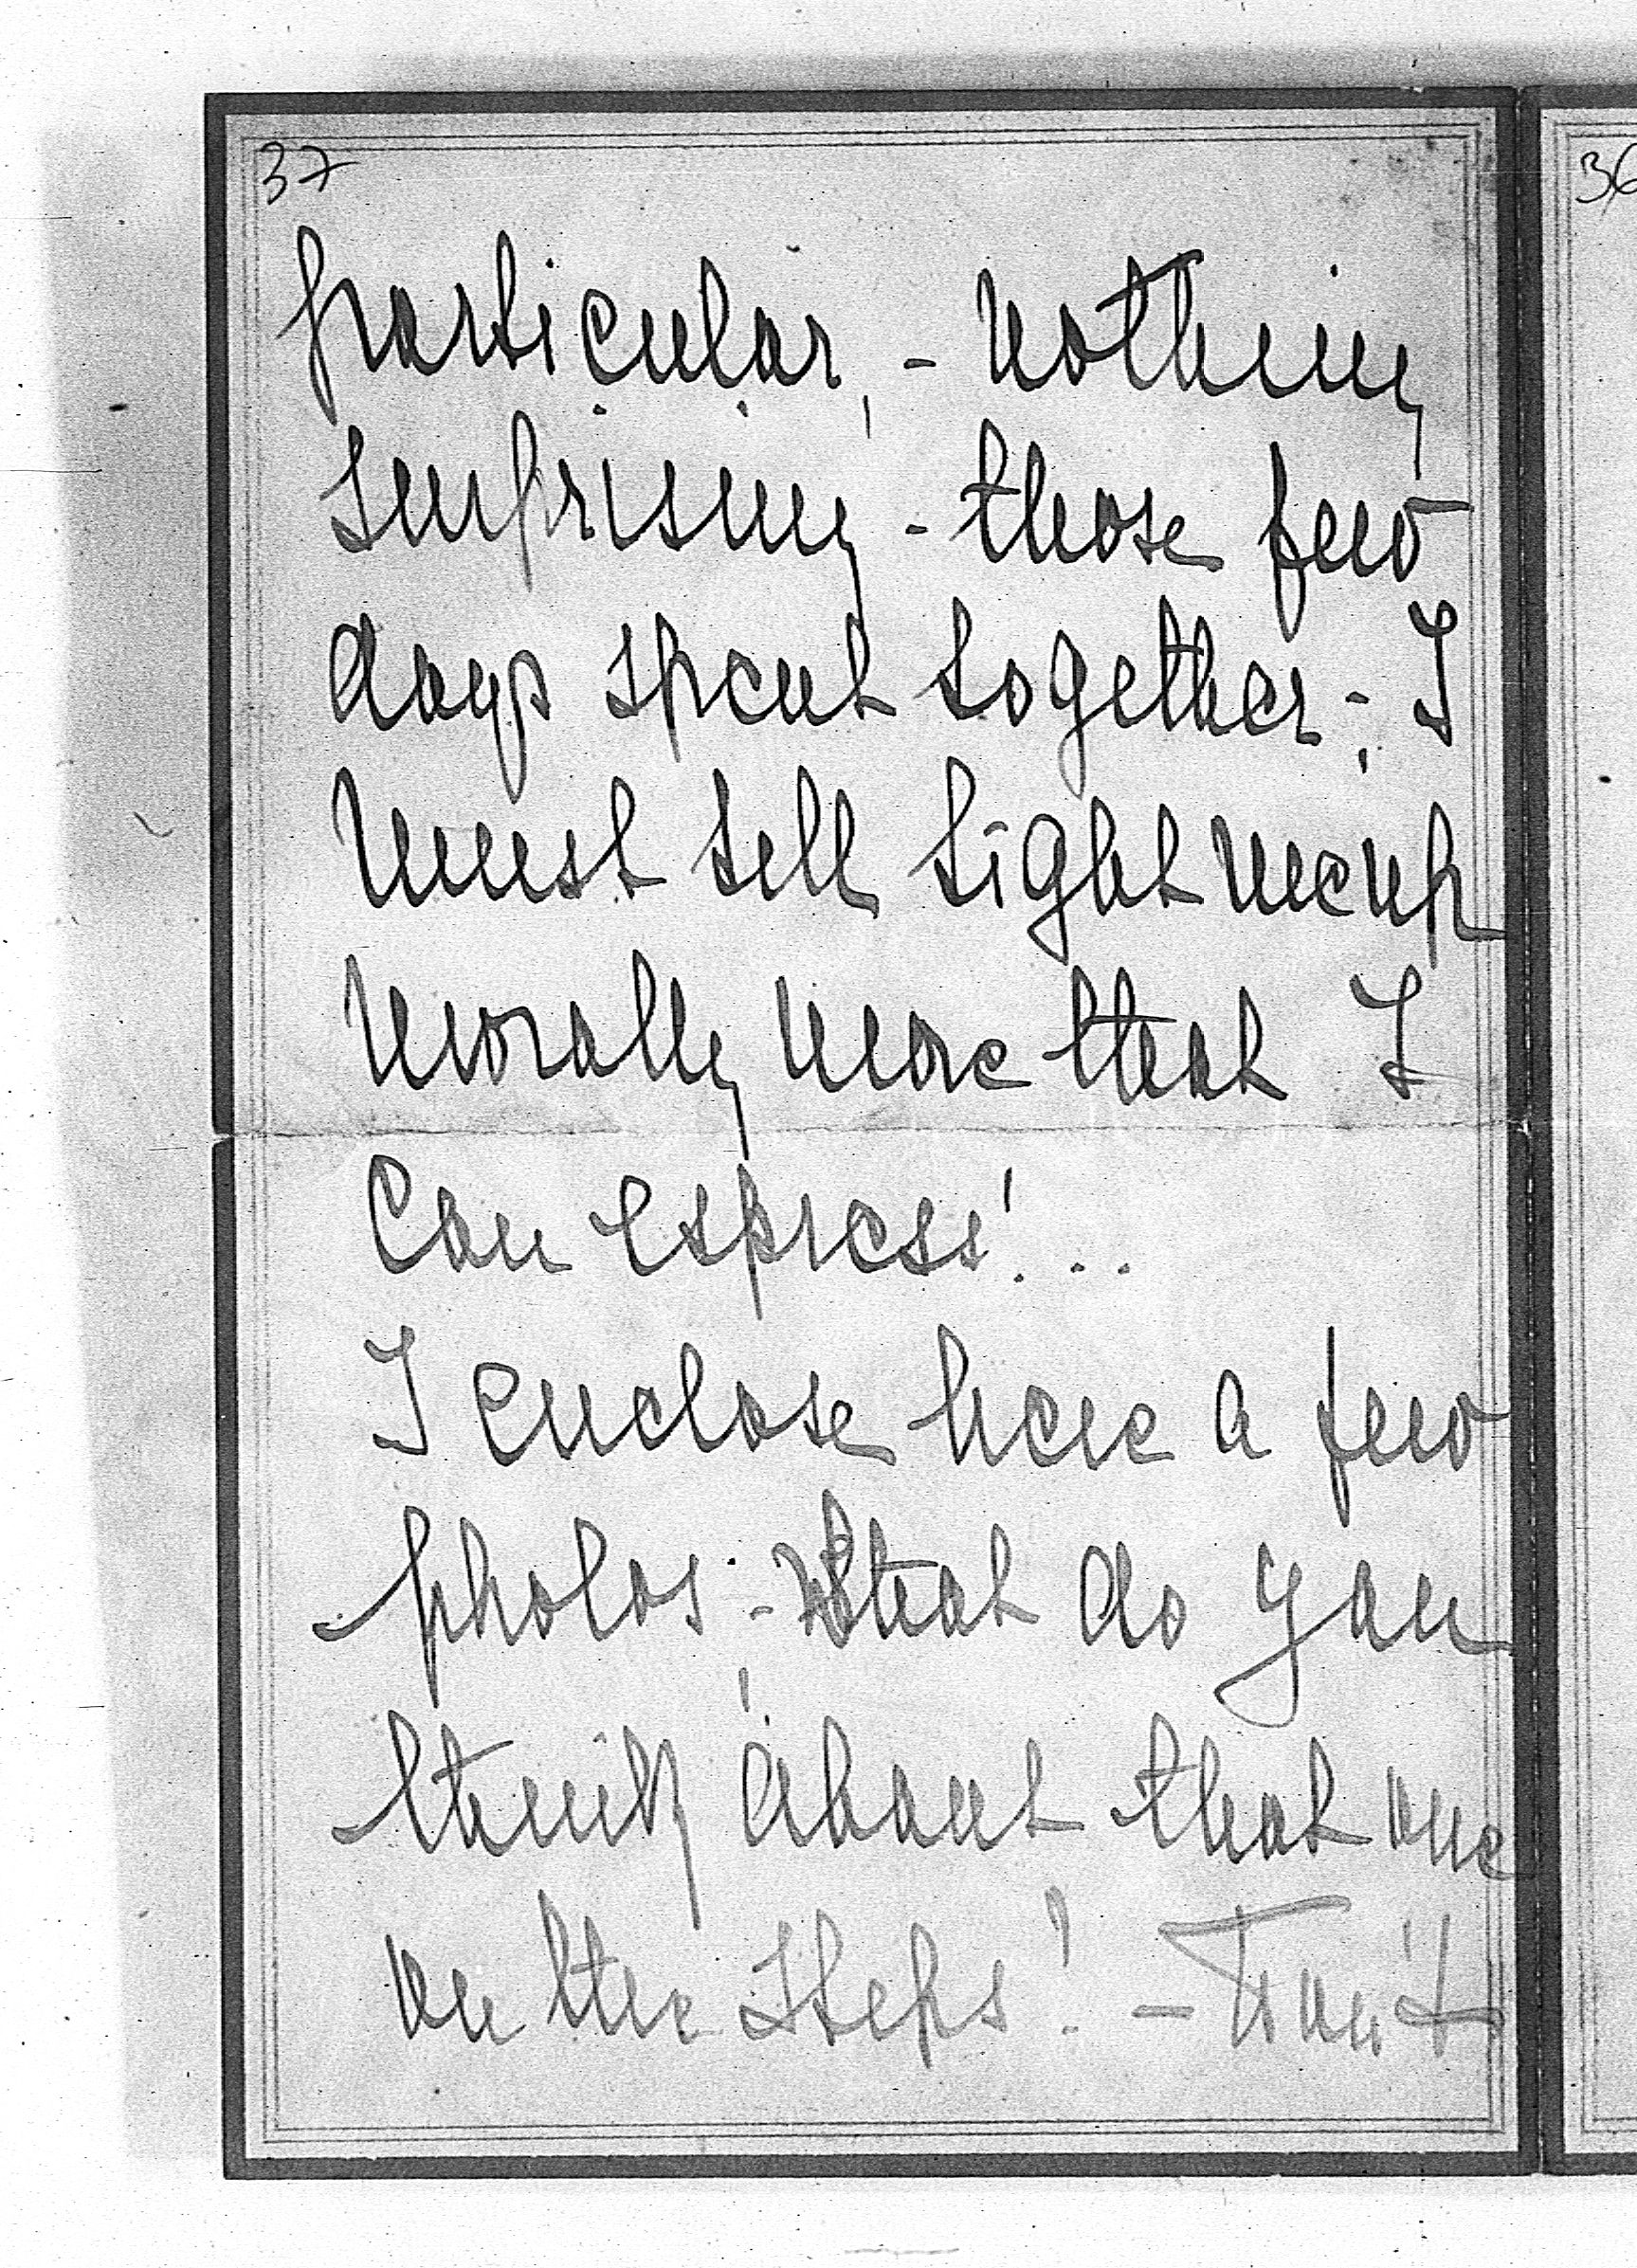 37
particular, - nothing
surprising - those few
days spent together - ; I
must tell
morally more that I
can express! . . .
I enclose here a few
photos. - What do you
think about that one
on the steps! - Won't
36